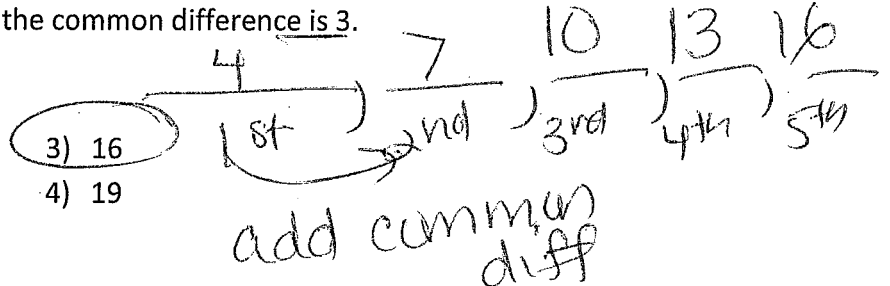 the common difference is 3.
4, 7, 10, 13, 16
1st 2nd 3rd 4th 5th
3) 16
4) 19
add common
diff